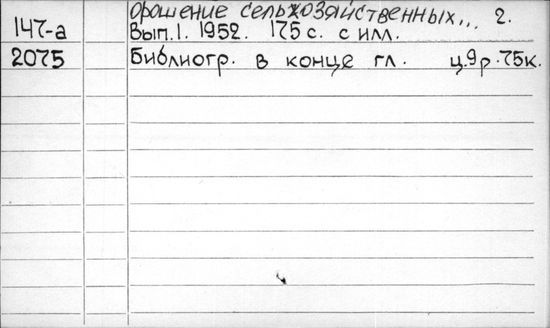 орошение сельхозяйственных... 2.
147-а Вып.1. 1952. 175 с. с илл.
2075 Библиогр. в конце гл. ц.9р.75к.